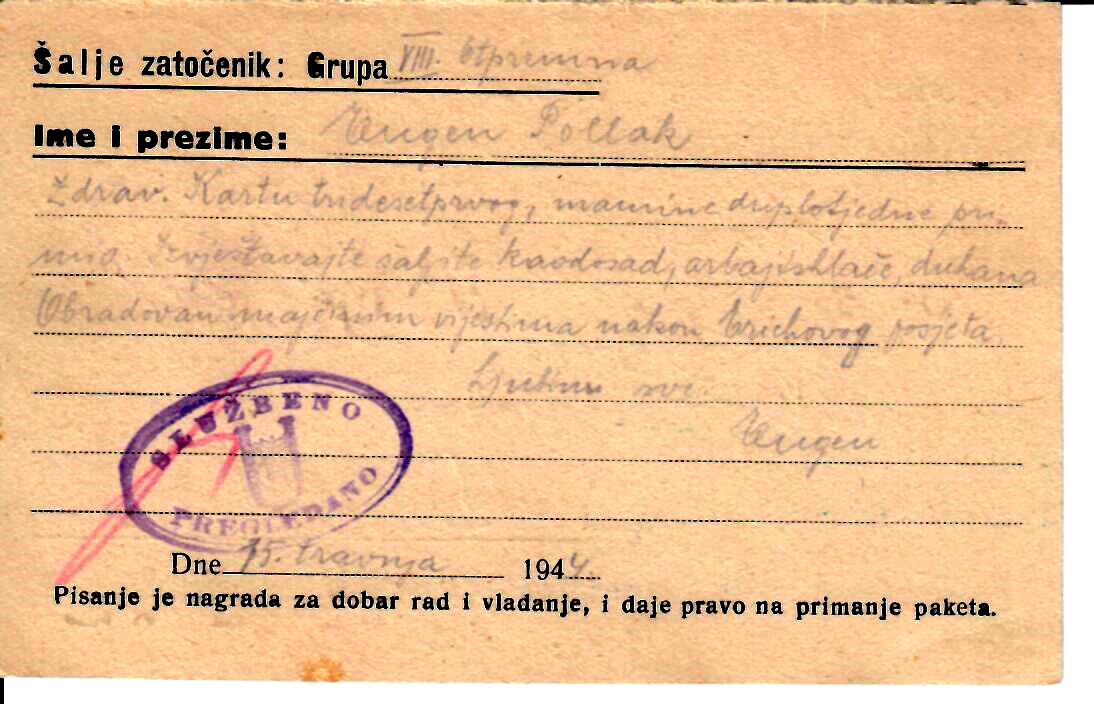 Šalje zatočenik: Grupa VIII. Otpremna
Ime i prezime: Eugen Pollak
Zdrav. Kartu tridesetprvog, mamine duplotjedne pri-
mio. Izvještavajte šaljite kaodosad, arbajtshlače, duhana
Obradovan majčinim vijestima nakon Erichovog posjeta,
Ljubim sve.
Eugen
SLUŽBENO
PREGLEDANO
Dne 15. travnja 1944.
Pisanje je nagrada za dobar rad i vladanje, i daje pravo na primanje paketa.